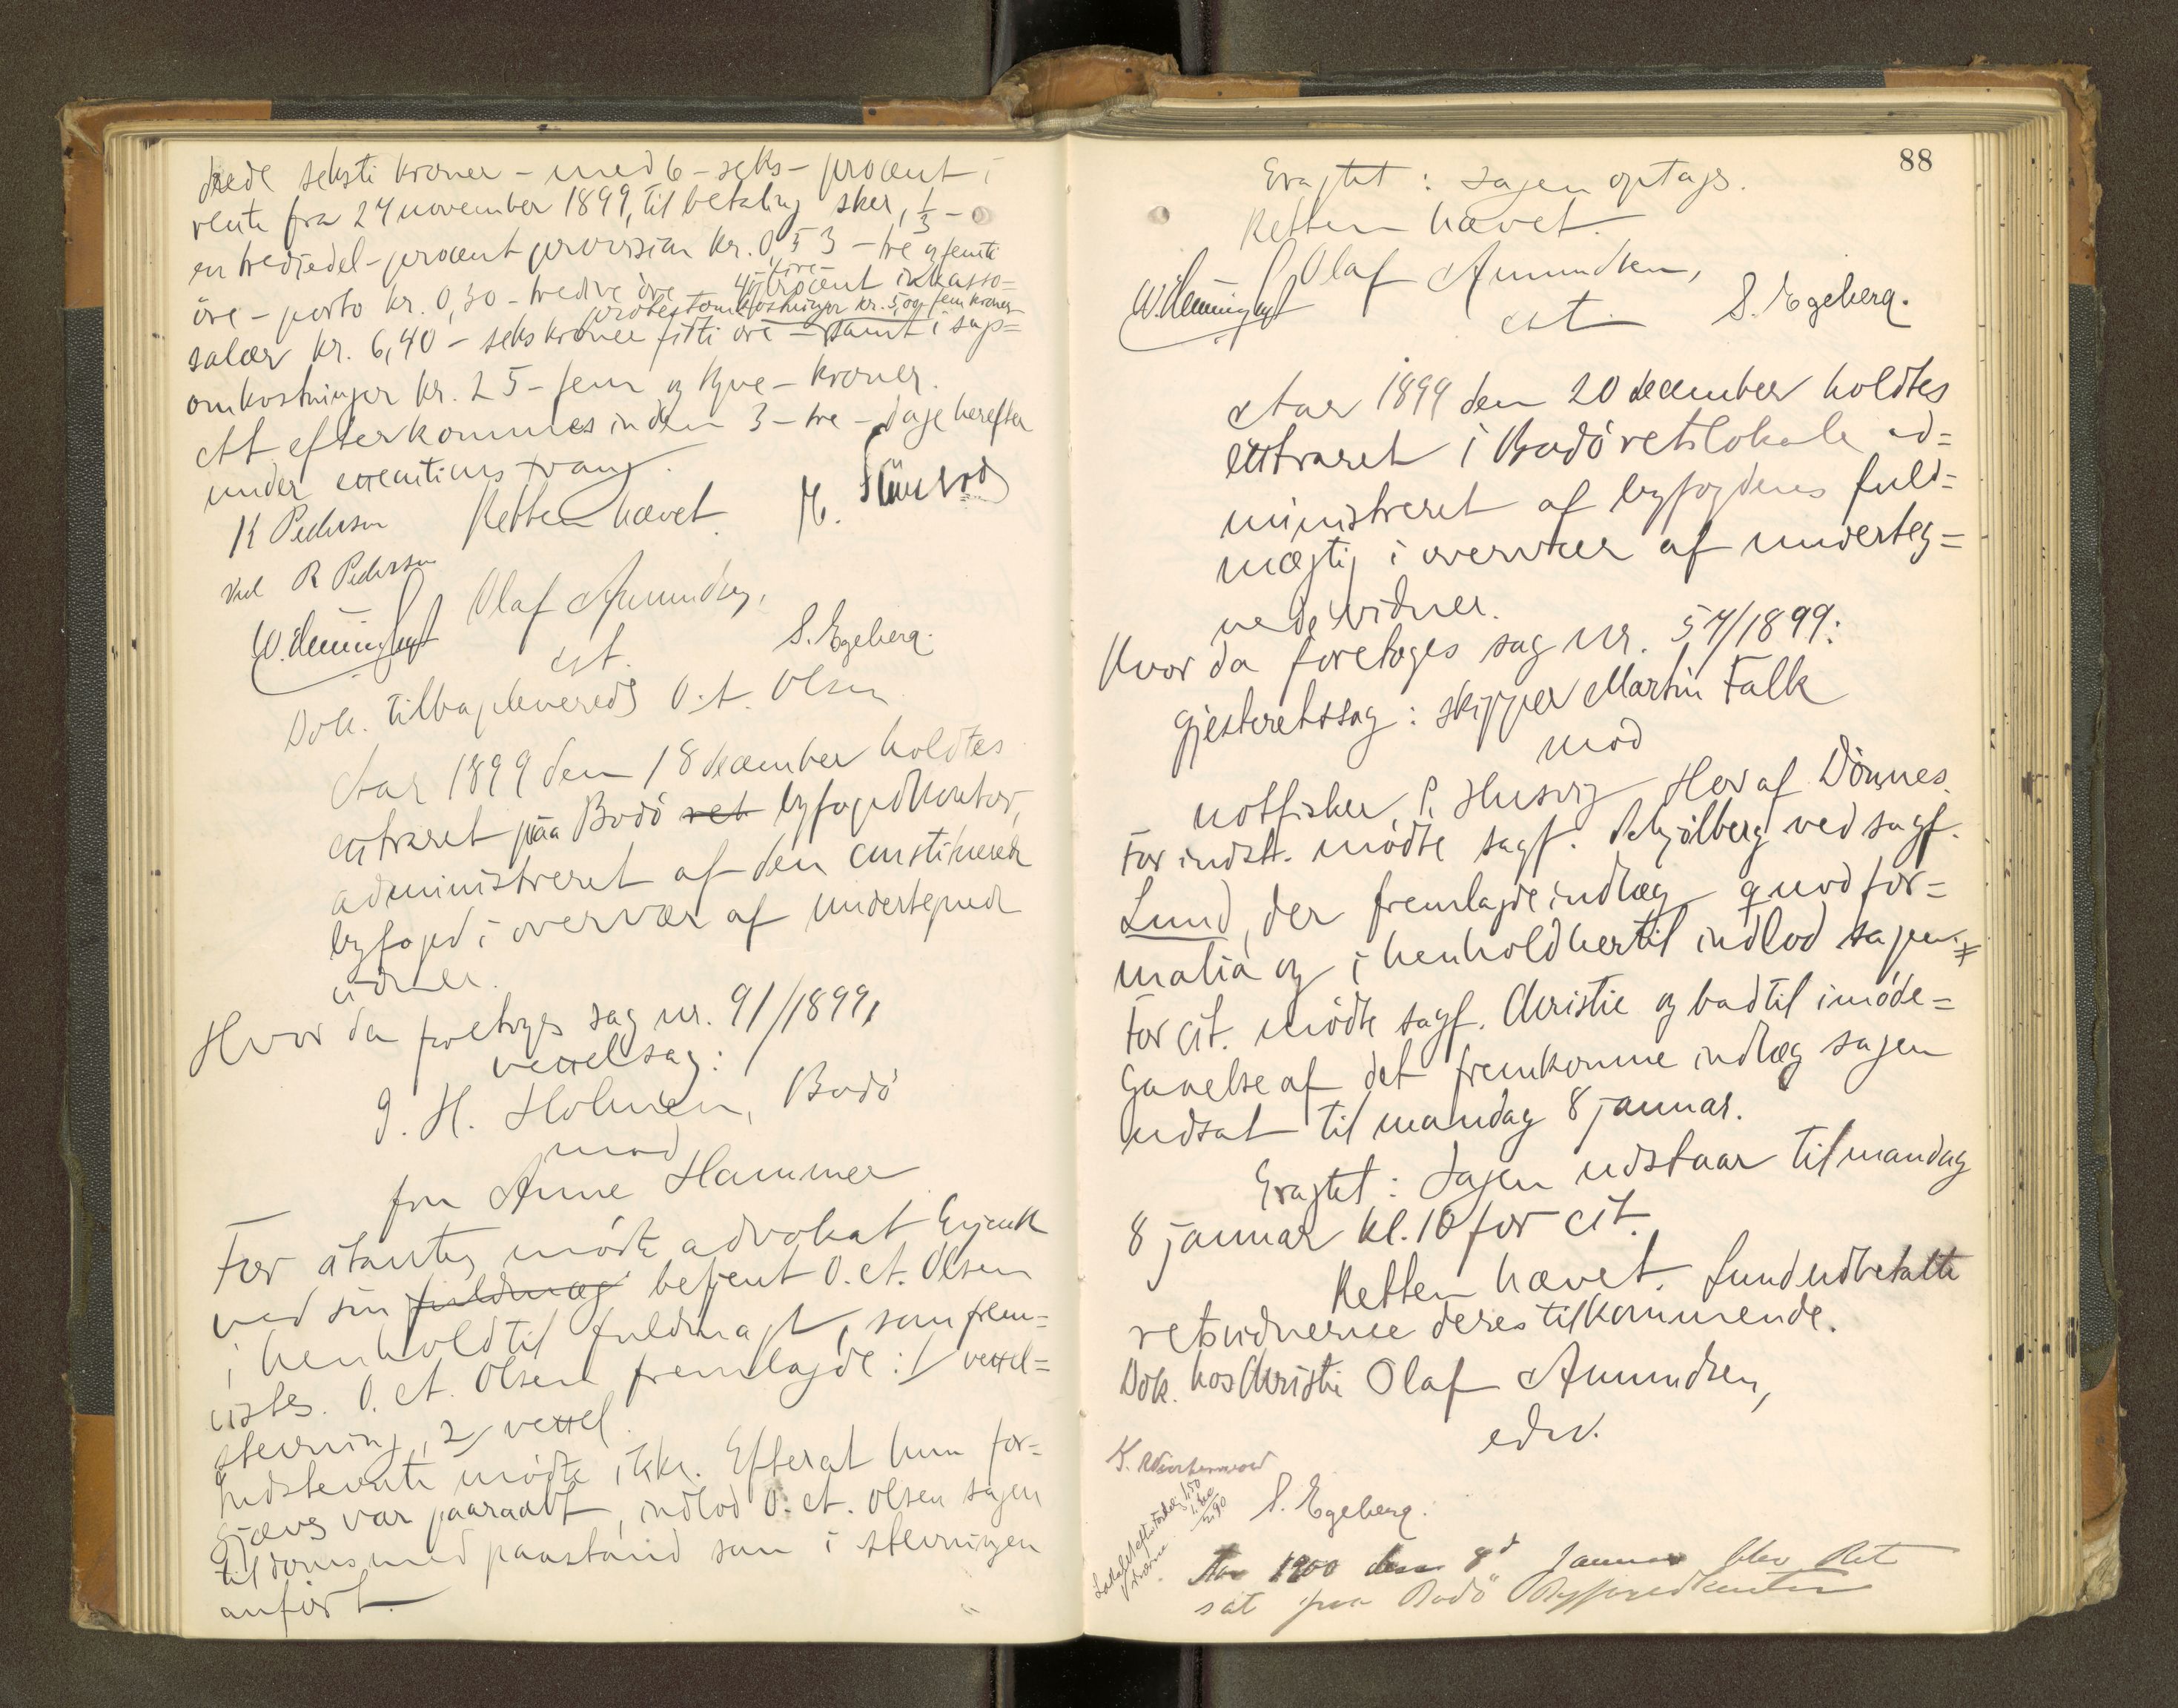 drede seksti kroner - med 6 - seks - procent i
rente fra 24 november 1899, til betaling sker, 1/3 -
en trediedel - procent provision kr. 0,53 - tre og femti
öre - porto kr. 0,30 - tredive öre - 4 - fire - procent inkasso=
protestomkostninger kr. 5,00 fem kroner
salær kr. 6,40 - seks kroner firti öre - samt i sags=
omkostninger kr. 25 - fem og tyve - kroner.
At efterkommes inden 3 - tre - dage herefter
under executions tvang.
K Pedersen Retten hævet.
ved R Pedersen
Olaf Amundsen,
cst. S. Egeberg.
Dok. tilbagleveredes O. A. Olsen
Aar 1899 den 18 december holdtes
extraret paa Bodö ret byfogedkontor,
administreret af den constituerede
byfoged i overvær af undertegnede
vidner.
Hvor da foretoges sag nr. 91/1899,
vexelsag:
J. H. Holmen, Bodö
mod
fru Anne Hammer
For citanten mödte advokat
ved sin fuldmæg betjent O. A. Olsen
i henhold til fuldmagt, som frem=
vistes. O. A. Olsen fremlagde: 1/ vexel=
stevning, 2/ vexel.
Indstevnte mödte ikke. Efterat hun for=
gjæves var paaraabt, indlod O. A. Olsen sagen
til doms med paastand som i stevningen
anfört.
88
Eragtet: Sagen optages.
Retten hævet.
Olaf Amundsen,
cst. S. Egeberg.
Aar 1899 den 20 december holdtes
extraret i Bodö retslokale ad=
ministreret af byfogdens fuld=
mægtig i overvær af underteg=
nede vidner.
Hvor da foretoges sag nr. 54/1899:
gjesteretssag: skipper Martin Falk
mod
notfisker P. Husvig Hov af Dönnes.
For indst. mödte sagf. Schjölberg ved sagf.
Lund, der fremlagde indlæg quod for=
malia og i henhold hertil indlod sagen.
For cit. mödte sagf. Christie og bad til imöde=
gaaelse af det fremkomne indlæg sagen
udsat til mandag 8 januar.
Eragtet: Sagen udstaar til mandag
8 januar kl. 10 for cit.
Retten hævet. Lund udbetalte
retsvidnerne deres tilkommende.
Dok. hos Christie Olaf Amundsen,
edsv.
S. Egeberg.
Aar 1900 den 8d Januar blev Ret
sat paa Bodö Byfogedkontor